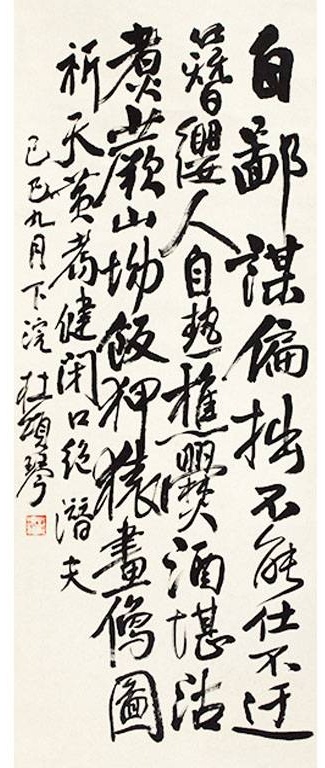 自鄙謀偏拙不能仕不迂
簪纓人自熱樵爨酒堪沽
煮蕨山坳飯狎猿畫僧圖
祈天黃耇健閉口絕潛夫
己巳九月下浣杜頌琴